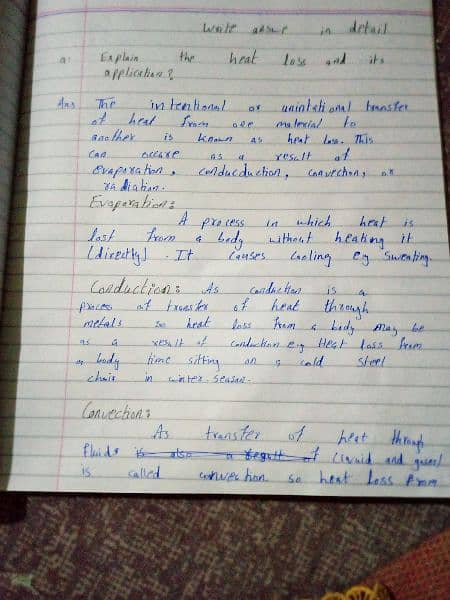 Write answe in detail
a: Explain the heat loss and its
application?
Ans The intentional or unintational transfer
of heal from one material to
another is known as heat loss. This
can occure as a result of
evaporation, conducduction, convection, or
radiation.
Evaporation:
A process in which heat is
lost from a body without heating it
(directly). It causes cooling eg sweating.
Conduction: As conduction is a
process of transfer of heat through
metals so heat loss from a body may be
as a result of conduction e.g Heat loss from
a body time sitting on a cold steel
chair in winter season.
Convection:
As transfer of heat through
fluids is also a result of (liquid and gases)
is called convection so heat loss from